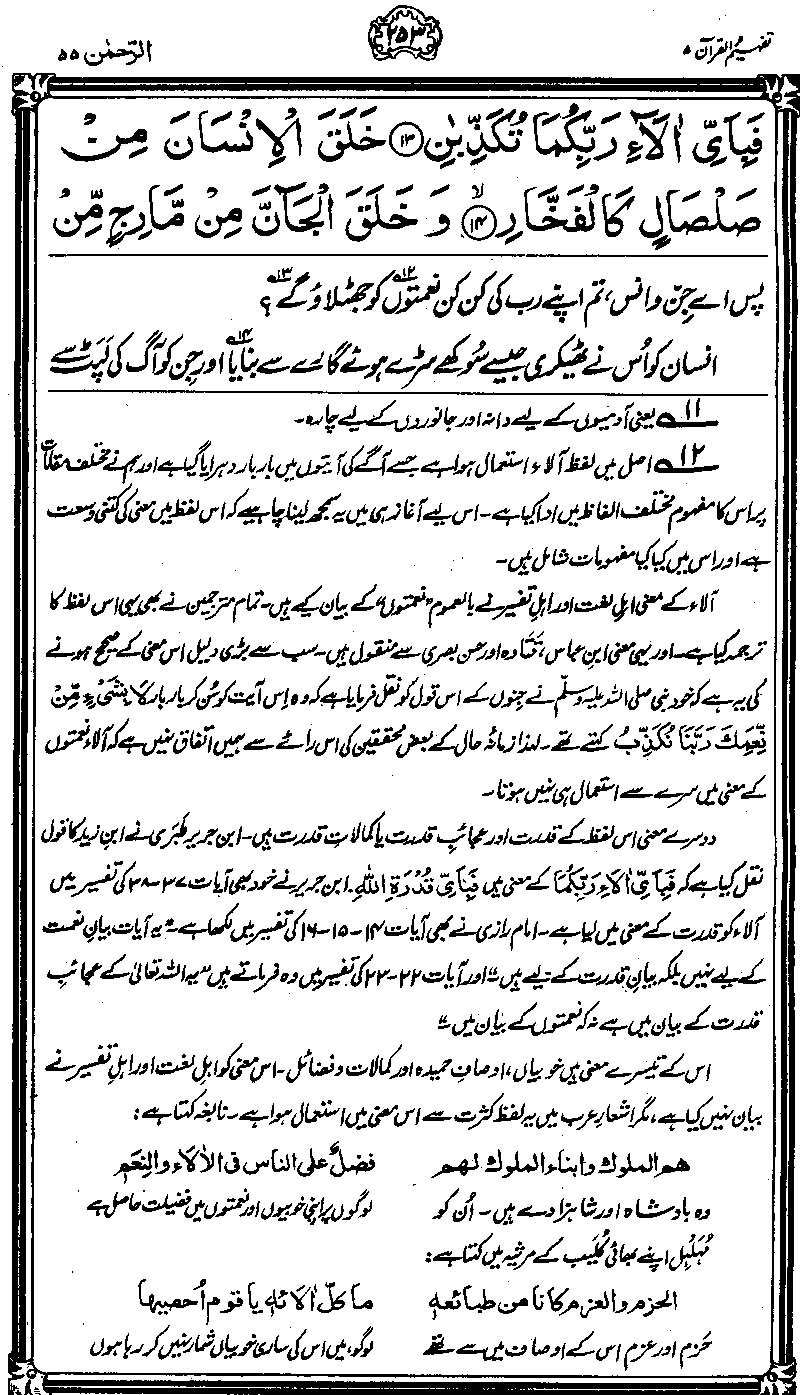 تفہیم القرآن ۵
۲۵۳
الرّحمٰن ۵۵
فَبِاَیِّ اٰلَآءِ رَبِّکُمَا تُکَذِّبٰنِ ⑬ خَلَقَ الْاِنْسَانَ مِنْ
صَلْصَالٍ کَالْفَخَّارِ ۙ⑭ وَ خَلَقَ الْجَآنَّ مِنْ مَّارِجٍ مِّنْ
پس اے جِنّ و انس، تم اپنے رب کی کن کن نعمتوں۱۲ کو جھٹلاؤ گے۱۳؟
انسان کو اُس نے ٹھیکری جیسے سُوکھے سڑے ہوئے گارے سے بنایا۱۴ اور جِن کو آگ کی لَپٹ سے
۱۱ یعنی آدمیوں کے لیے دانہ اور جانوروں کے لیے چارہ۔
۱۲ اصل میں لفظ آلاء استعمال ہوا ہے جسے آگے کی آیتوں میں بار بار دہرایا گیا ہے اور ہم نے مختلف مقامات
پر اس کا مفہوم مختلف الفاظ میں ادا کیا ہے۔ اس لیے آغاز ہی میں یہ سمجھ لینا چاہیے کہ اس لفظ میں معنی کی کتنی وسعت
ہے اور اس میں کیا کیا مفہومات شامل ہیں۔
آلاء کے معنی اہلِ لغت اور اہلِ تفسیر نے بالعموم ”نعمتوں“ کے بیان کیے ہیں۔ تمام مترجمین نے بھی یہی اس لفظ کا
ترجمہ کیا ہے۔ اور یہی معنی ابن عباس، قَتَادہ اور حسن بصری سے منقول ہیں۔ سب سے بڑی دلیل اس معنی کے صحیح ہونے
کی یہ ہے کہ خود نبی صلی اللہ علیہ وسلّم نے جِنوں کے اس قول کو نقل فرمایا ہے کہ وہ اِس آیت کو سُن کر بار بار لَا بِشَیْءٍ مِّنْ
نِّعَمِكَ رَبَّنَا نُكَذِّبُ کہتے تھے۔ لہٰذا زمانۂ حال کے بعض محققین کی اس رائے سے ہمیں اتفاق نہیں ہے کہ آلاء نعمتوں
کے معنی میں سرے سے استعمال ہی نہیں ہوتا۔
دوسرے معنی اس لفظ کے قدرت اور عجائبِ قدرت یا کمالاتِ قدرت ہیں۔ ابن جریر طَبَری نے ابنِ زید کا قول
نقل کیا ہے کہ فَبِاَیِّ اٰلَاءِ رَبِّکُمَا کے معنی ہیں فَبِاَیِّ قُدْرَةِ اللهِ۔ ابن جریر نے خود بھی آیات ۳۷-۳۸ کی تفسیر میں
آلاء کو قدرت کے معنی میں لیا ہے۔ امام رازی نے بھی آیات ۱۴-۱۵-۱۶ کی تفسیر میں لکھا ہے ”یہ آیات بیانِ نعمت
کے لیے نہیں بلکہ بیانِ قدرت کے لیے ہیں“ اور آیات ۲۲-۲۳ کی تفسیر میں وہ فرماتے ہیں ”یہ اللہ تعالیٰ کے عجائبِ
قدرت کے بیان میں ہے نہ کہ نعمتوں کے بیان میں“۔
اس کے تیسرے معنی ہیں خوبیاں، اوصافِ حمیدہ اور کمالات و فضائل۔ اس معنی کو اہلِ لغت اور اہلِ تفسیر نے
بیان نہیں کیا ہے، مگر اشعارِ عرب میں یہ لفظ کثرت سے اس معنی میں استعمال ہوا ہے۔ نابغہ کہتا ہے:
هم الملوك وابناء الملوك لهم فضلٌ على الناس فى الاٰلاء والنِعَم
وہ بادشاہ اور شاہزادے ہیں۔ اُن کو لوگوں پر اپنی خوبیوں اور نعمتوں میں فضیلت حاصل ہے
مُہَلْہِل اپنے بھائی کُلَیب کے مرثیہ میں کہتا ہے:
الحزم والعزم كانا من طبائعه ما كلّ اٰلائهٖ يا قوم اُحصيها
حَزم اور عزم اس کے اوصاف میں سے تھے لوگو، میں اس کی ساری خوبیاں شمار نہیں کر رہا ہوں